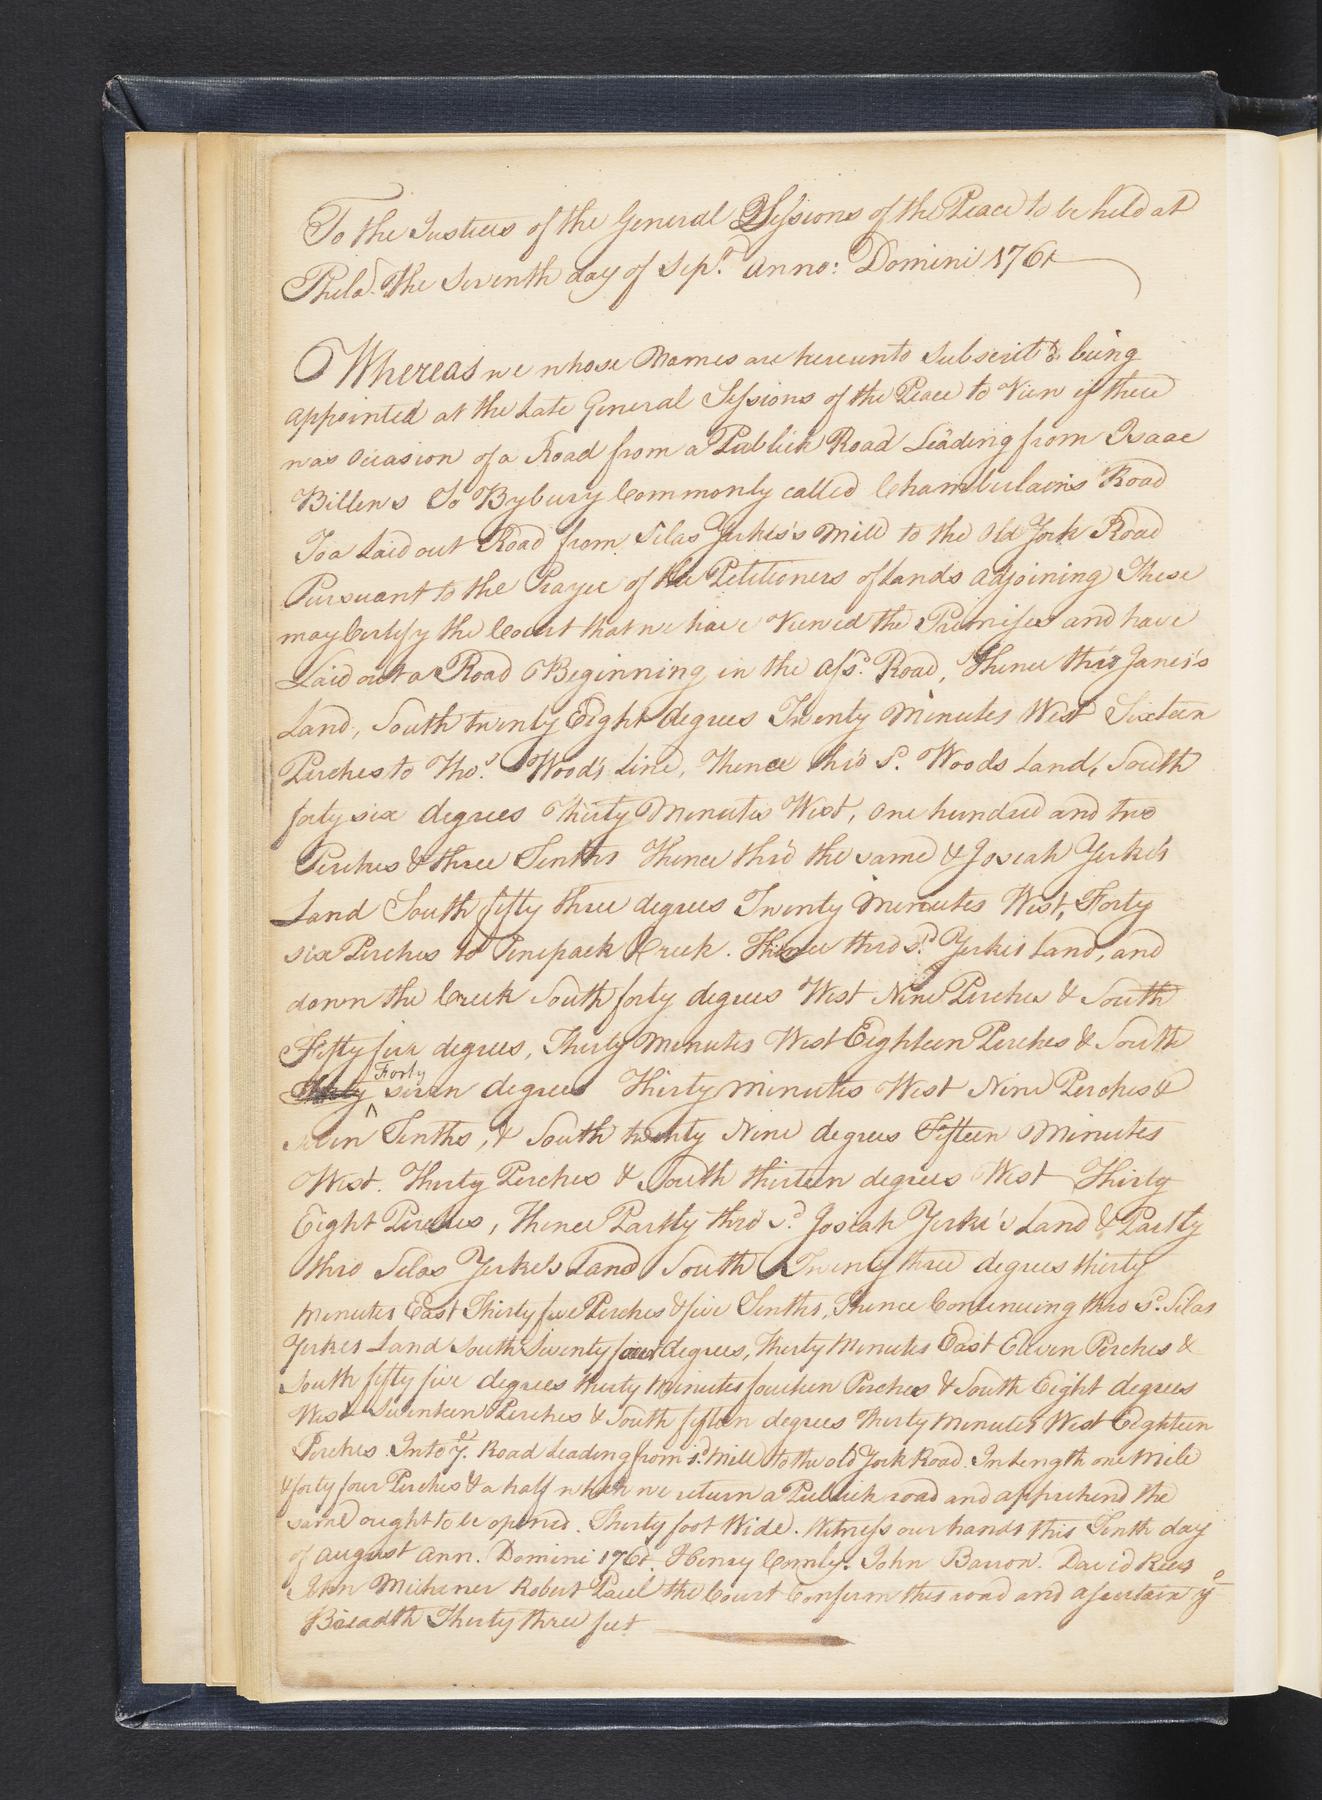 To the Justices of the General Sessions of the Peace to be held at
Philad. the Seventh day of Sepr. Anno: Domini 1761
Whereas we whose Names are hereunto Subscrib'd being
appointed at the Late General Sessions of the Peace to View if there
was Occasion of a Road from a Publick Road Leading from Isaac
Billens To Bybury Commonly called Chamberlain's Road
To a Laid out Road from Silas Yerkes's Mill to the Old York Road
Pursuant to the Prayer of the Petitioners of Lands adjoining These
may Certify the Court that we have Viewed the Premises and have
Laid out a Road Beginning in the afsd. Road, Thence thro' Janes's
Land, South twenty Eight degrees Twenty Minutes West Sixteen
Perches to Thos. Wood's Line, Thence thro' Sd. Woods Land, South
forty six degrees Thirty Minutes West, One hundred and two
Perches & three Tenths Thence thro' the same & Josiah Yerke's
Land South fifty three degrees Twenty Minutes West, Forty
six Perches to Penepack Creek. Thence thro sd. Yerkes Land, and
down the Creek South forty degrees West Nine Perches & South
Fifty five degrees, Thirty Minutes West Eighteen Perches & South
Forty seven degrees Thirty Minutes West Nine Perches &
seven Tenths, & South twenty Nine degrees Fifteen Minutes
West. Thirty Perches & South thirteen degrees West Thirty
Eight Perches, Thence Partly thro' sd. Josiah Yerke's Land & Partly
thro Silas Yerke's Land South Twenty three degrees thirty
Minutes East Thirty five Perches & five Tenths, Thence Continuing thro Sd. Silas
Yerkes Land South Seventy four degrees, Thirty Minutes East Eleven Perches &
South fifty five degrees thirty Minutes fourteen Perches & South Eight degrees
West Seventeen Perches & South fifteen degrees Thirty Minutes West Eighteen
Perches Into ye. Road Leading from sd. Mill to the old York Road. In Length one Mile
& forty four Perches & a half which we return a Publick road and apprehend the
same ought to be opened. Thirty foot Wide. Witness our hands this Tenth day
of August Ann. Domini 1761 Henry Comly. John Barron. David Rees
John Michener Robert Paul the Court Confirm this road and ascertain ye
Breadth Thirty three feet